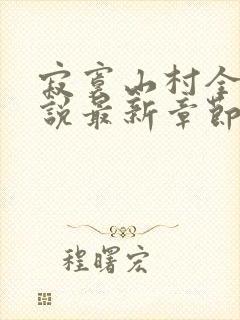 寂寞山村全
說最新章節
程曙宏